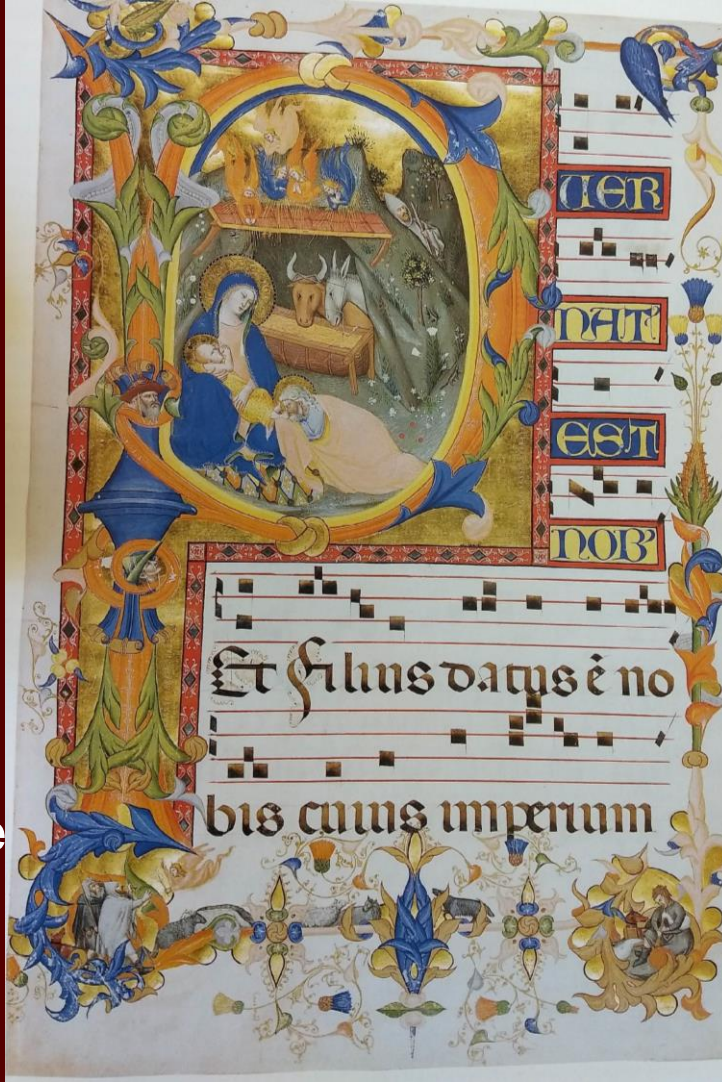 P
UER
NAT'
EST
NOB'
Et Filius datus ē no
e
bis cuius imperium